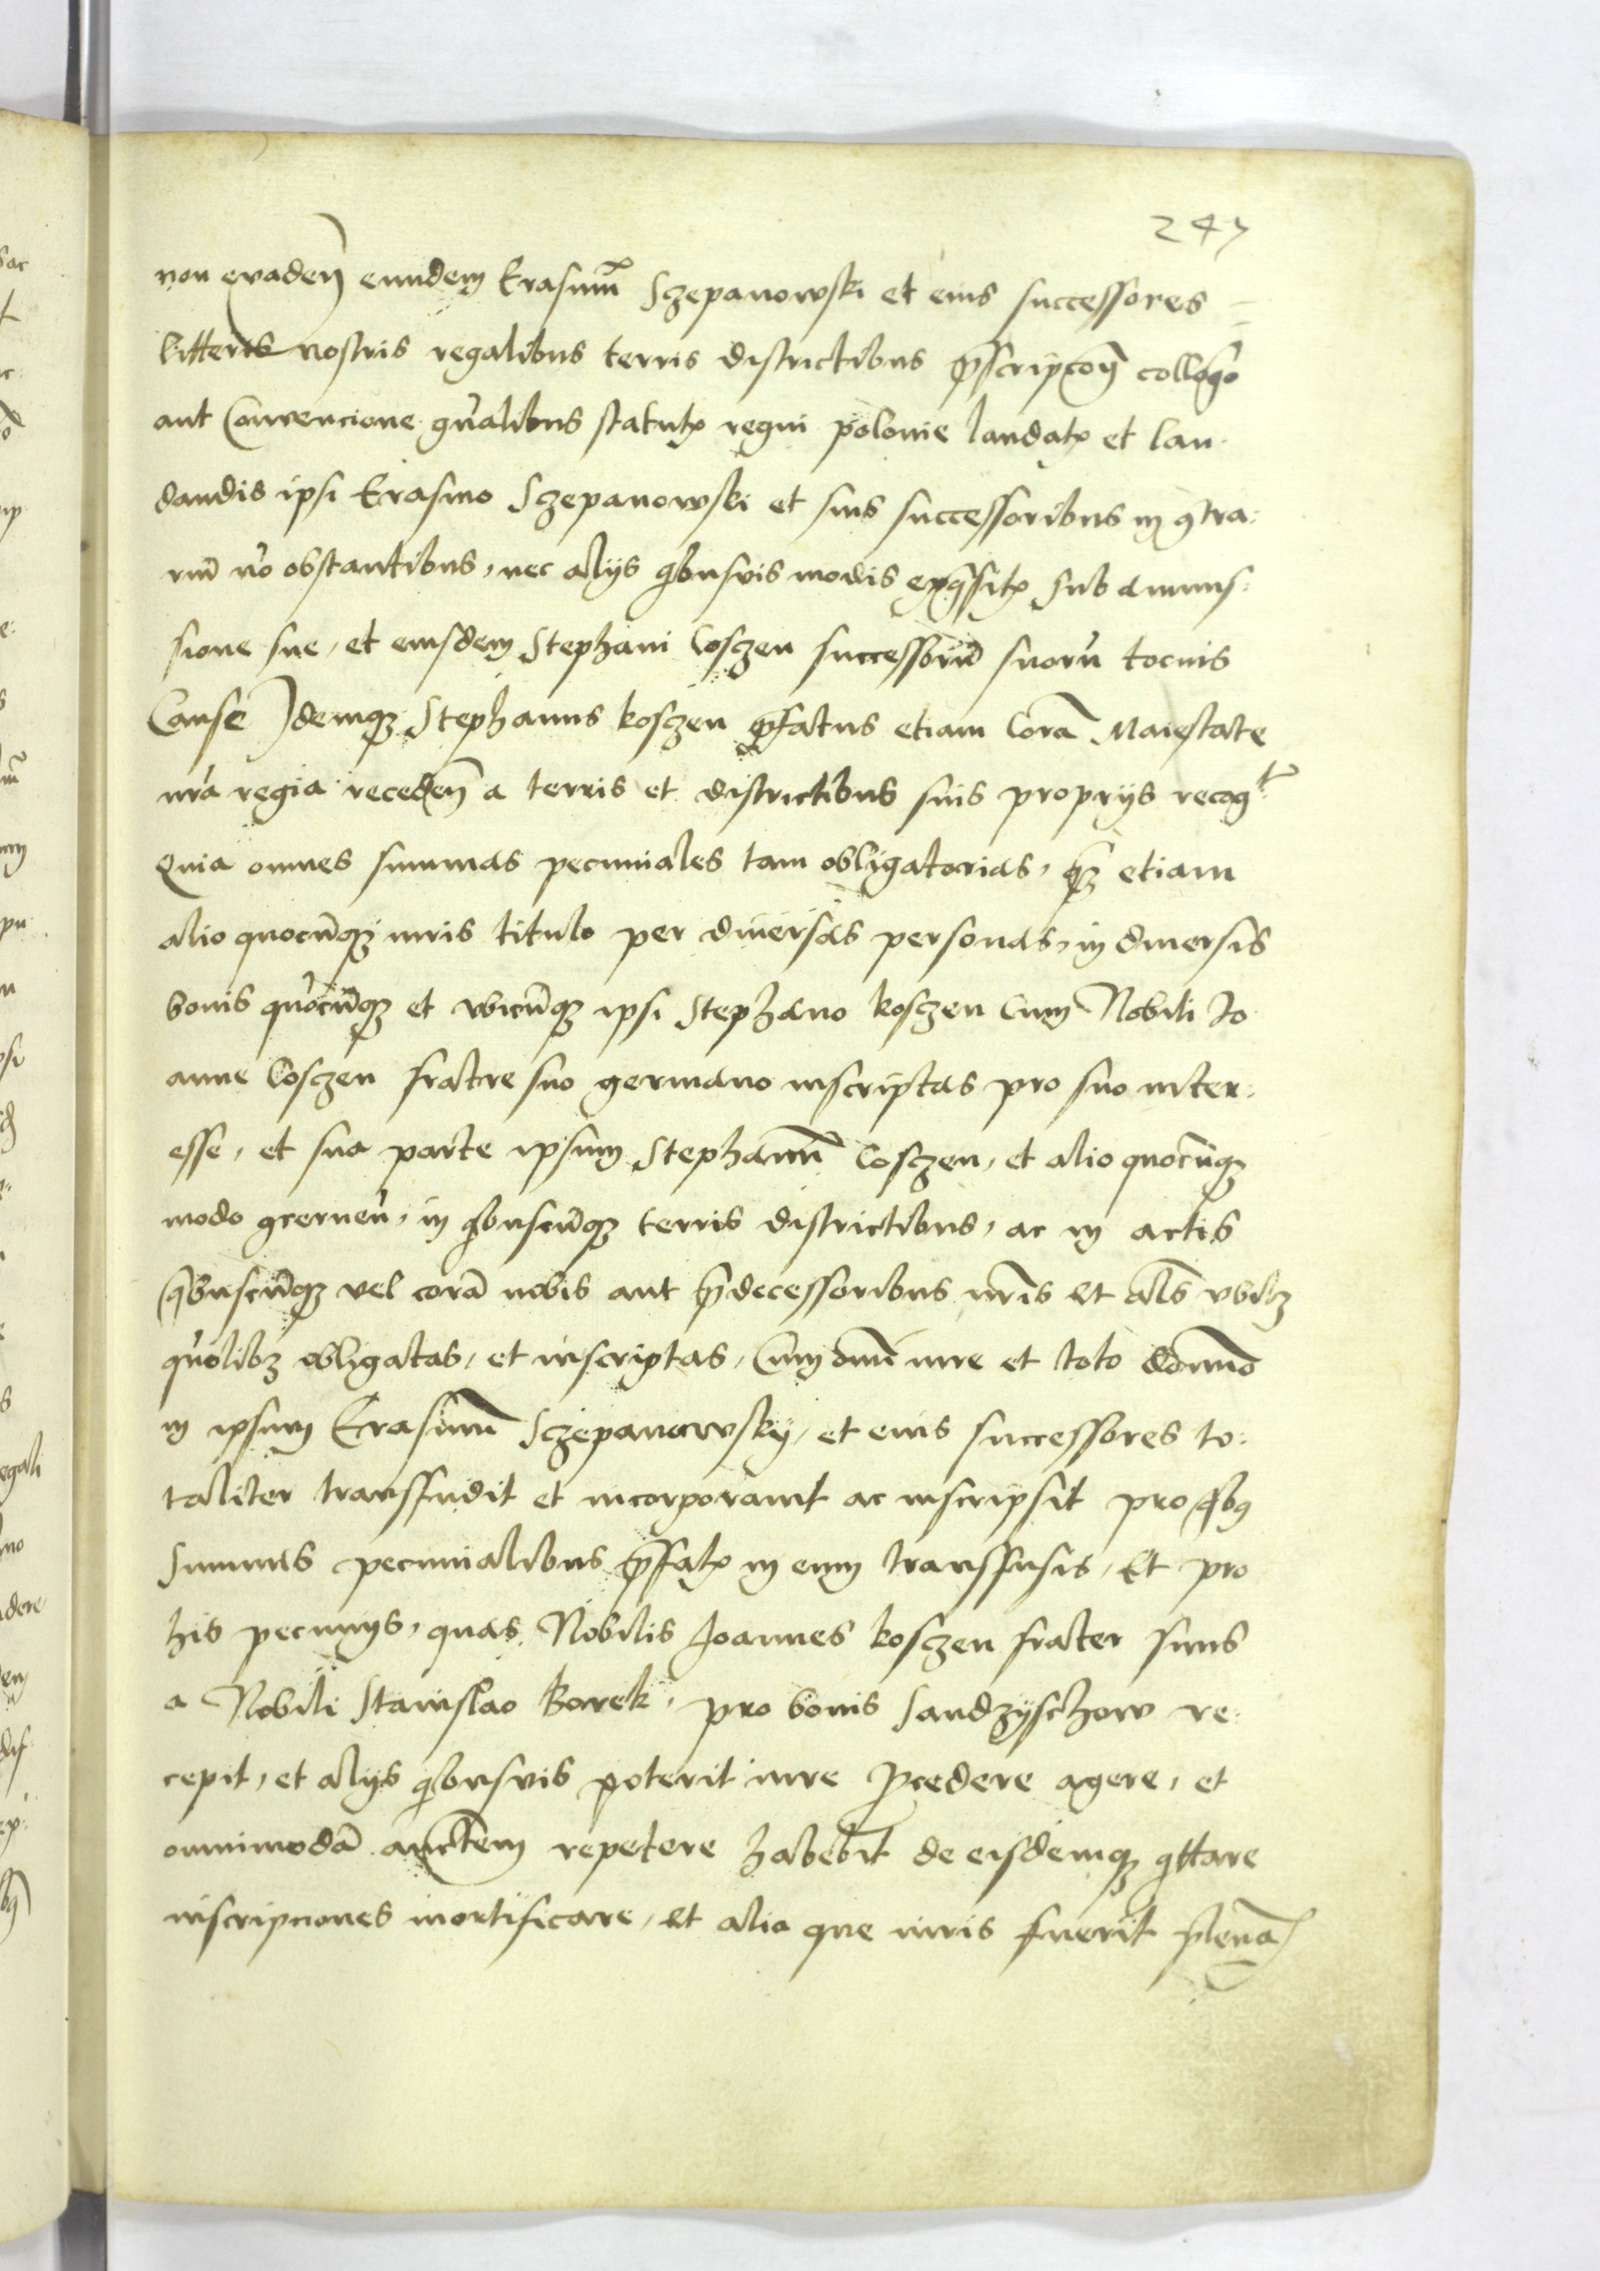 247
non evaden̄ eundem Erasmū Sczepanowski et eius successores
litteris nostris regalibus terris districtibus p̄scripcōn̄ colloq̄o
aut Convencione gn̄alibus statutꝭ regni polonie laudatꝭ et lau-
dandis ipsi Erasmo Sczepanowski et suis successoribus in ɔtra:
riū nō obstantibus, nec alijs qͥbusvis modis exqͥsitꝭ sub amis:
sione sue, et eiusdem Stephani Cosczen successorū suorū tocius
Causē Idemqꝫ Stephanus kosczen p̄fatus etiam Corā Maiestate
nr̄a regia receden̄ a terris et districtibus suis proprijs recogᵗ
Quia omnes summas pecuniales tam obligatorias, qͣꝫ etiam
alio quocūqꝫ iuris titulo per diversas personas, in diuersis
bonis qūocūqꝫ et vbicūqꝫ ipsi Stephano kosczen Cum Nobili Jo
anne Cosczen fratre suo germano inscriptas pro suo inter:
esse, et sua parte ipsum Stephanū Cosczen, et alio quocūqꝫ
modo ɔcernen̄, in qͥbuscūqꝫ terris districtibus, ac in actis
qͥbuscūqꝫ vel corā nobis aut p̄decessoribus nr̄is et al̄s vbilꝫ
qūolibꝫ obligatas, et inscriptas, Cum om̄i iure et toto do̅m̅o
in ipsum Erasmū Sczepanowsky, et eius successores to:
taliter transfudit et incorporavit ac inscripsit pro qͥbꝯ
Summis pecunialibus p̄fatꝭ in eum transfusis, et pro
his pecunijs, quas Nobilis Joannes kosczen frater suus
a Nobili Stanislao Borek, pro bonis Sandzyschow re:
cepit, et alijs qͥbusvis poterit iure ꝓcedere agere, et
omnimodā auctem repetere habebit de eisdemqꝫ qͥttare
inscripciones mortificare, et alia que iuris fuerit plenā